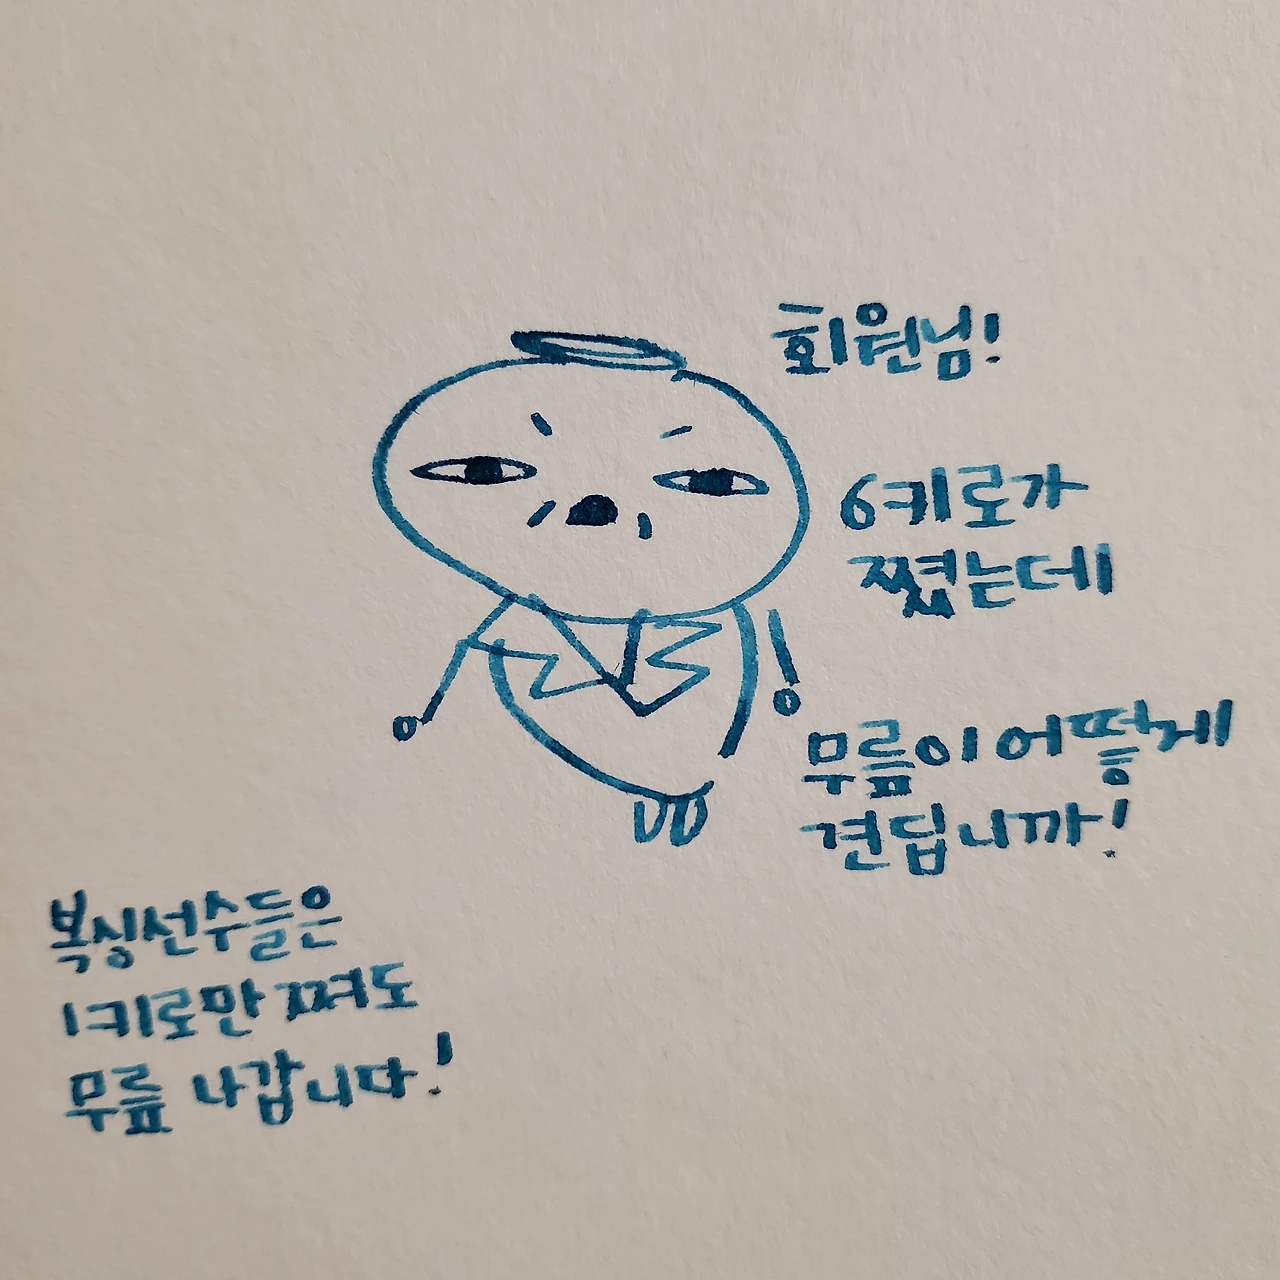 회원님!
6키로가
쪘는데
무릎이 어떻게
견딥니까!
복싱선수들은
1키로만 쪄도
무릎 나갑니다!